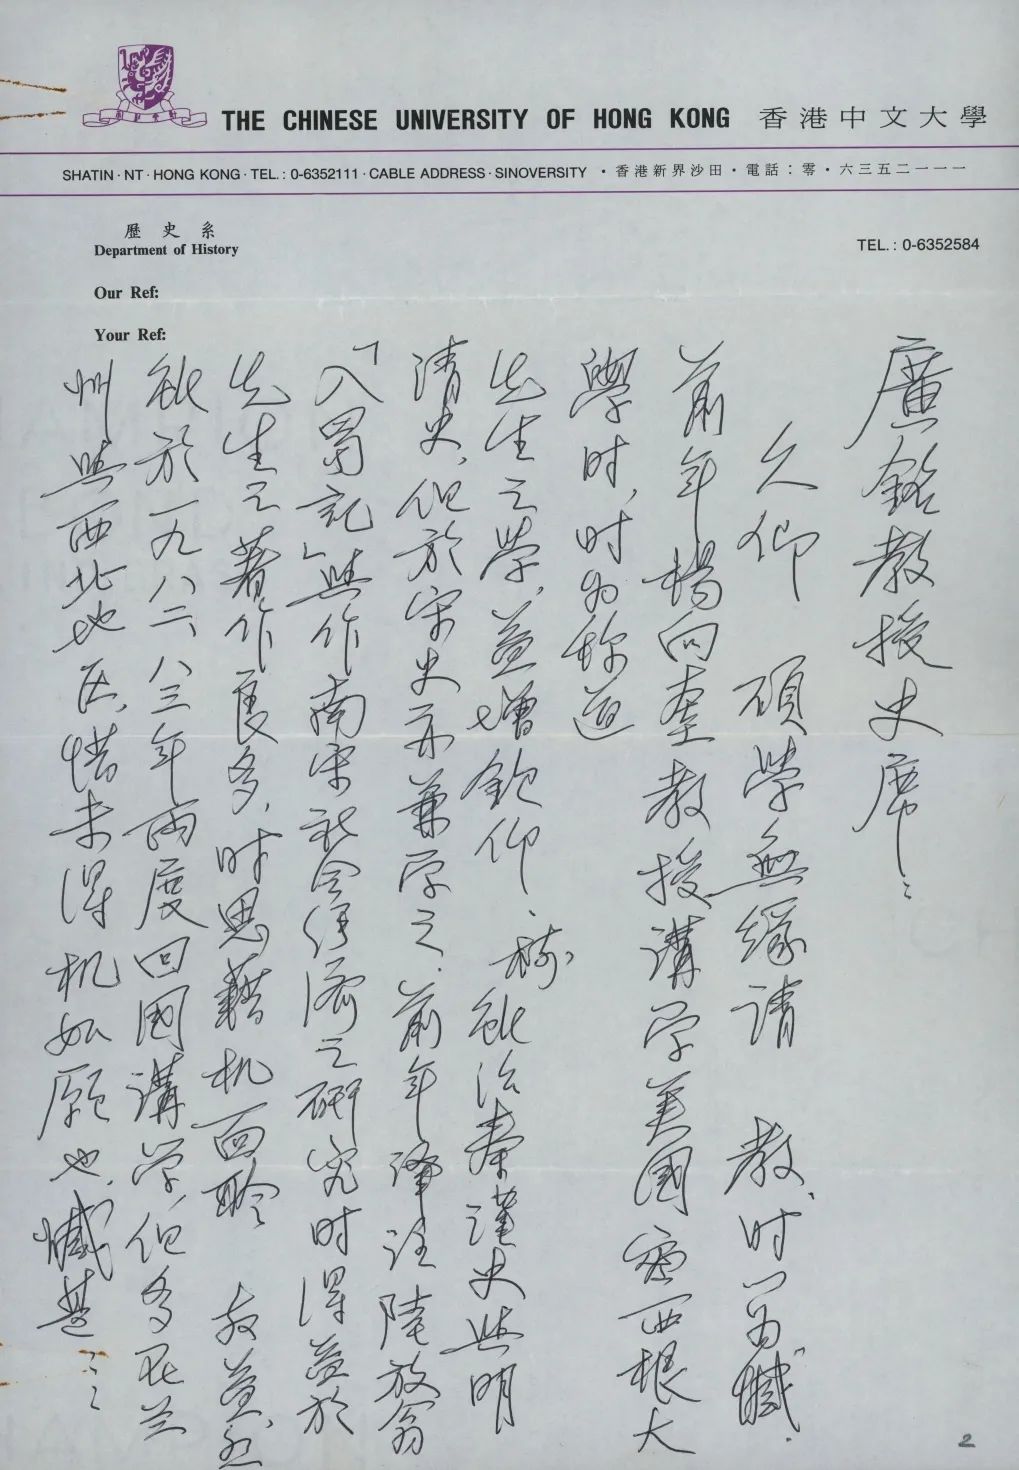 THE CHINESE UNIVERSITY OF HONG KONG 香港中文大學
SHATIN · NT · HONG KONG · TEL.: 0-6352111 · CABLE ADDRESS · SINOVERSITY · 香港新界沙田 · 電話：零 · 六三五二一一一
歷史系
Department of History
TEL.: 0-6352584
Our Ref:
Your Ref:
廣銘教授史席：
久仰 碩學無緣請 教，时以为憾。
前年楊向奎教授講学美國密西根大
學时，时为称道
先生之學，益增欽仰。 弟治秦漢史與明
清史，但於宋史亦兼学之。前年譯註陸放翁
「入蜀記」與作南宋社会經濟之研究时得益於
先生之著作良多，时思藉机面聆 教益，
於一九八二、八三年兩度回國講学，但多在兰
州與西北地区，惜未得机如願也，憾甚：：
2